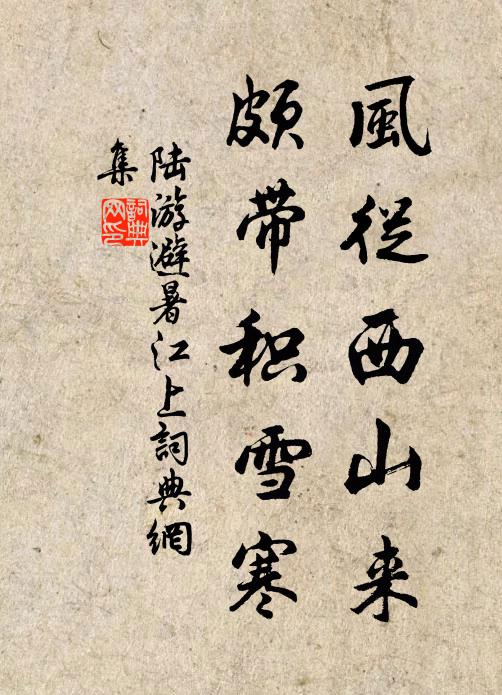 風從西山来
頗带积雪寒
陆游避暑江上詞典網
集
詞典
网印